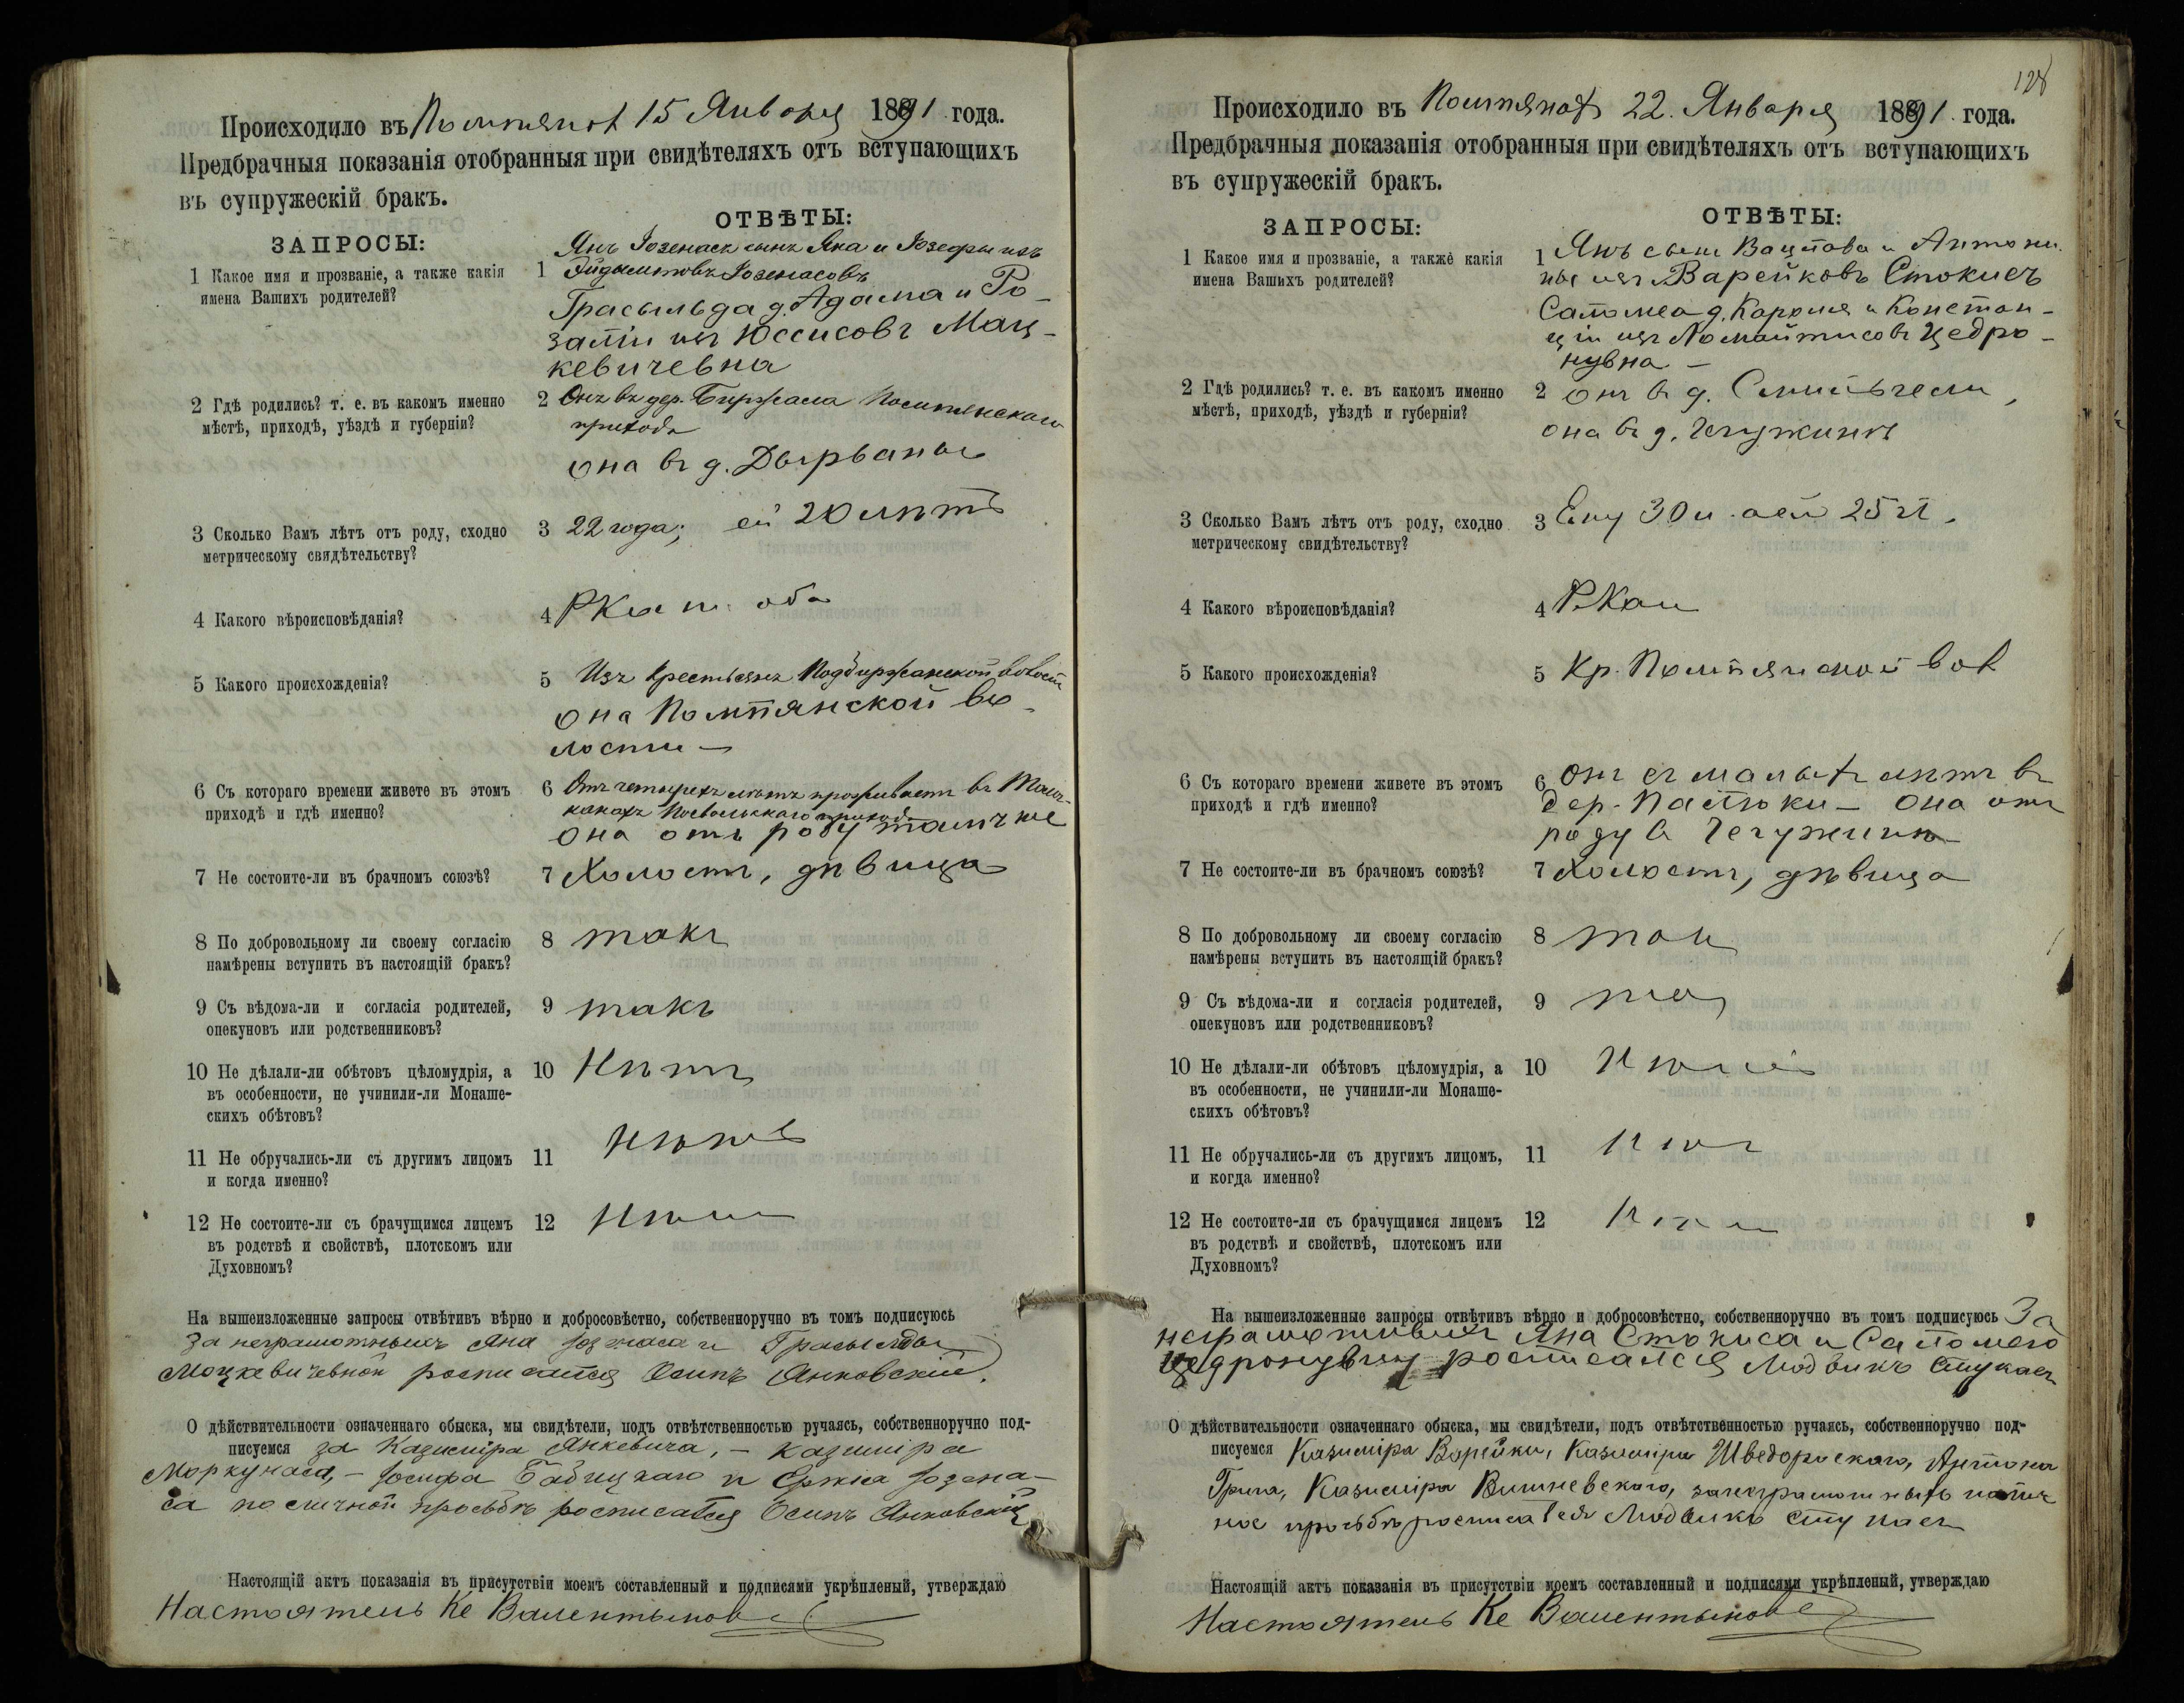 Происходило въ 15 Января 1891 года.
Предбрачныя показанія отобранныя при свидѣтеляхъ отъ вступающихъ
въ супружескій бракъ.
ЗАПРОСЫ:
ОТВѢТЫ:
1 Какое имя и прозваніе, а также какія
имена Вашихъ родителей?
1 Янъ Іозенасъ сынъ Яна и Іозефы изъ
Іозенасовъ
Грасыльда д. Адама и Ро-
заліи изъ Юссисовъ Мац-
кевичевна
2 Гдѣ родились? т. е. въ какомъ именно
мѣстѣ, приходѣ, уѣздѣ и губерніи?
2 Онъ въ дер. Биржала
прихода
она въ д. Дырваны
3 Сколько Вамъ лѣтъ отъ роду, сходно
метрическому свидѣтельству?
3 22 года; ей 20 лѣтъ
4 Какого вѣроисповѣданія?
4 РКат. оба
5 Какого происхожденія?
5 Изъ крестьянъ Подбиржанской волости
она Помпянской во-
лости —
6 Съ котораго времени живете въ этомъ
приходѣ и гдѣ именно?
6 Отъ четырехъ лѣтъ проживаетъ въ
прихода
она отъ роду тамъ же
7 Не состоите-ли въ брачномъ союзѣ?
7 Холостъ, дѣвица
8 По добровольному ли своему согласію
намѣрены вступить въ настоящій бракъ?
8 такъ
9 Съ вѣдома-ли и согласія родителей,
опекуновъ или родственниковъ?
9 такъ
10 Не дѣлали-ли обѣтовъ цѣломудрія, а
въ особенности, не учинили-ли Монаше-
скихъ обѣтовъ?
10 Нѣтъ
11 Не обручались-ли съ другимъ лицомъ
и когда именно?
11 Нѣтъ
12 Не состоите-ли съ брачущимся лицемъ
въ родствѣ и свойствѣ, плотскомъ или
Духовномъ?
12 Нѣтъ
На вышеизложенные запросы отвѣтивъ вѣрно и добросовѣстно, собственноручно въ томъ подписуюсь
За неграмотныхъ Яна Іозенаса и Грасыльды
Мацкевичевной росписался Осипъ Янковскій.
О дѣйствительности означеннаго обыска, мы свидѣтели, подъ отвѣтственностью ручаясь, собственноручно под-
писуемся за Казиміра Янкевича, — Казиміра
Моркунаса, — Іосифа Бабицкаго и Іозена-
са по личной просьбѣ росписался Осипъ Янковскій
Настоящій актъ показанія въ присутствіи моемъ составленный и подписями укрѣпленый, утверждаю
Настоятель Кс Валентыновъ
128
Происходило въ 22. Января 1891 года.
Предбрачныя показанія отобранныя при свидѣтеляхъ отъ вступающихъ
въ супружескій бракъ.
ЗАПРОСЫ:
ОТВѢТЫ:
1 Какое имя и прозваніе, а также какія
имена Вашихъ родителей?
1 Янъ сынъ Вацлава и Антони-
ны изъ Варейковъ Стокисъ
Саломеа д. Кароля и Констан-
ціи изъ Цедро-
нувна —
2 Гдѣ родились? т. е. въ какомъ именно
мѣстѣ, приходѣ, уѣздѣ и губерніи?
2 онъ въ д.
она въ д.
3 Сколько Вамъ лѣтъ отъ роду, сходно
метрическому свидѣтельству?
3 Ему 30 л. а ей 25 л.
4 Какого вѣроисповѣданія?
4 Р.Кат
5 Какого происхожденія?
5 Кр. Помпянской вол
6 Съ котораго времени живете въ этомъ
приходѣ и гдѣ именно?
6 Онъ съ малыхъ лѣтъ въ
дер. Пастоки — Она отъ
роду въ
7 Не состоите-ли въ брачномъ союзѣ?
7 Холостъ, дѣвица
8 По добровольному ли своему согласію
намѣрены вступить въ настоящій бракъ?
8 такъ
9 Съ вѣдома-ли и согласія родителей,
опекуновъ или родственниковъ?
9
10 Не дѣлали-ли обѣтовъ цѣломудрія, а
въ особенности, не учинили-ли Монаше-
скихъ обѣтовъ?
10 Нѣтъ
11 Не обручались-ли съ другимъ лицомъ,
и когда именно?
11 Нѣтъ
12 Не состоите-ли съ брачущимся лицемъ
въ родствѣ и свойствѣ, плотскомъ или
Духовномъ?
12 Нѣтъ
На вышеизложенные запросы отвѣтивъ вѣрно и добросовѣстно, собственноручно въ томъ подписуюсь За
неграмотныхъ Яна Стокиса и Саломею
Цедронувну росписался Людвикъ Стукасъ
О дѣйствительности означеннаго обыска, мы свидѣтели, подъ отвѣтственностью ручаясь, собственноручно под-
писуемся Казиміра Варейки, Казиміра Антона
Грига, Казиміра Вишневскаго, за неграмотныхъ
просьбѣ росписался Людвикъ Стукасъ
Настоящій актъ показанія въ присутствіи моемъ составленный и подписями укрѣпленый, утверждаю
Настоятель Кс Валентыновъ